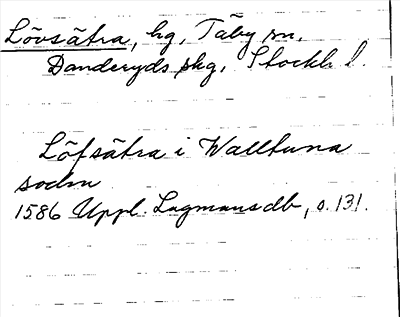 Lövsätra, hg, Täby sn,
Danderyds skg, Stockh. l.
Löfsätra i Walltuna
sockn
1586 Uppl. Lagmansdb, s. 131.